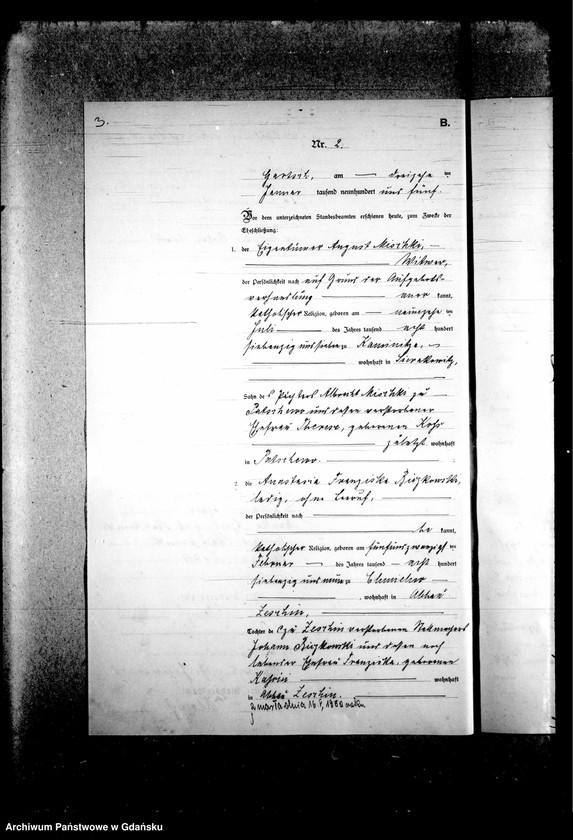 3.
B.
Nr. 2.
am — dreizehn ten
Januar tausend neunhundert und fünf
Vor dem unterzeichneten Standesbeamten erschienen heute, zum Zwecke der
Eheschließung:
1. der Eigentümer August Mischki, —
Witwer,
der Persönlichkeit nach auf Grund der Aufgebots-
verhandlung — aner kannt,
katholischer Religion, geboren am — neunzehn ten
Juli — des Jahres tausend — acht hundert
siebenzig und sieben zu Kaminitza, —
wohnhaft in Sierakowitz,
Sohn des Pächters Albrecht Mischki zu
Patschewo und dessen verstorbener
Ehefrau Therese, geborenen
zuletzt wohnhaft
in Patschewo.
2. die Anastasia Franziska
ledig, ohne Beruf,
der Persönlichkeit nach
be kannt,
katholischer Religion, geboren am fünfundzwanzigsten
Februar — des Jahres tausend — acht hundert
siebenzig und neun zu Chmelno —
, wohnhaft in Abbau
Leschin,
Tochter des zu Leschin verstorbenen
Johann und dessen noch
lebender Ehefrau Franziska, geborenen
wohnhaft
in Abbau Leschin.
zmarła dnia 16 1980 roku
Archiwum Państwowe w Gdańsku